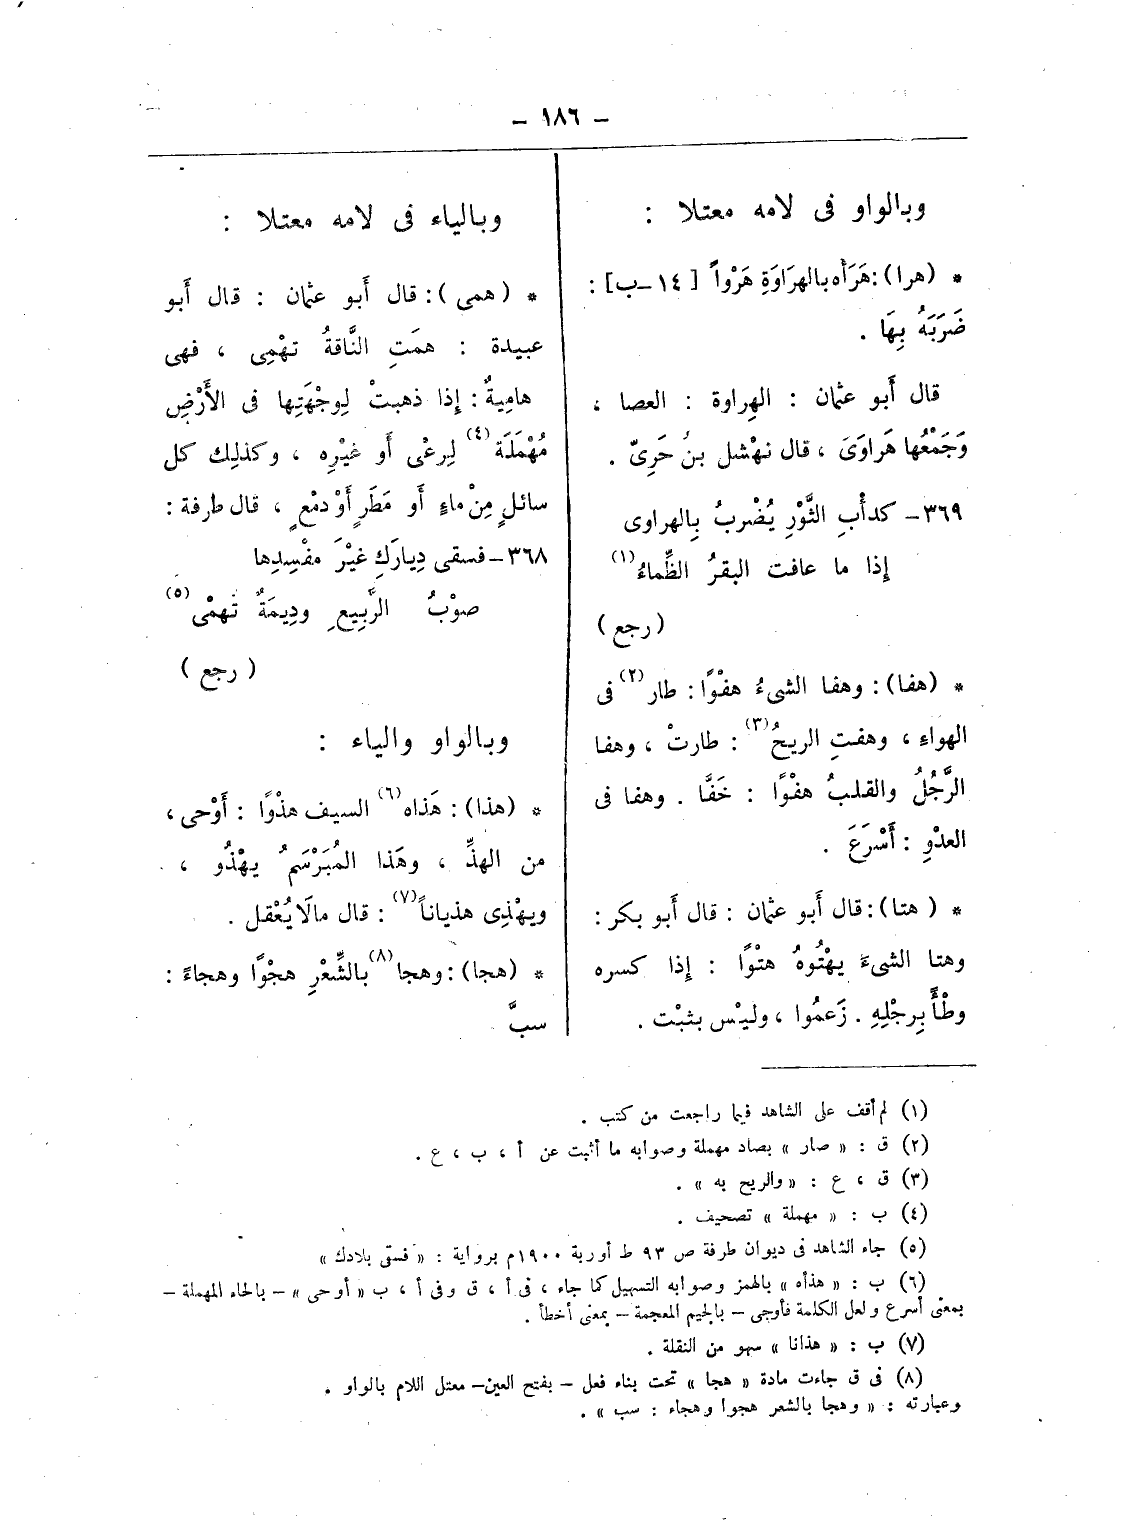 – ١٨٦ –
وبالواو فى لامه معتلا :
* (هرا): هَرَأَه بالهرَاوَةِ هَرْواً [ ١٤ – ب] :
ضَرَبَهُ بِهَا .
قال أَبو عثمان : الهِراوة : العصا ،
وَجَمْعُها هَراوَىَ ، قال نهْشل بنُ حَرِىّ .
٣٦٩ – كدأْبِ الثَّوْرِ يُضْربُ بِالهراوى
إذا ما عافت البقرُ الظِّماءُ (١)
( رجع )
* (هفا) : وهفا الشىءُ هفْوًا : طار (٢) فى
الهواءِ ، وهفتِ الريحُ (٣) : طارتْ ، وهفا
الرَّجُلُ والقلبُ هفْوًا : خَفَّا . وهفا فى
العدْوِ : أَسْرَعَ .
* ( هتا) : قال أَبو عثمان : قال أَبو بكر :
وهتا الشىءَ يهْتُوهُ هتْوًا : إذا كسره
وطْأً بِرِجْلِهِ . زَعمُوا ، وليْس بثبْت .
وبالياء فى لامه معتلا :
* ( همى ) : قال أَبو عثمان : قال أَبو
عبيدة : همَتِ النَّاقةُ تهْمِى ، فهى
هامِيةٌ : إِذا ذهبتْ لِوِجْهَتِها فى الأَرْضِ
مُهْمَلَة (٤) لِرِعْى أَو غيْرِه ، وكذلِك كل
سائلٍ مِنْ ماءٍ أَو مَطَرٍ أَوْ دمْعٍ ، قال طرفة :
٣٦٨ – فسقى دِيارَكِ غيْرَ مفْسِدِها
صوْبُ الرَّبِيعِ ودِيمَةٌ تَهمْى (٥)
( رجع )
وبالواو والياء :
* (هذا) : هَذاه (٦) السيف هذْوًا : أَوْحى ،
من الهذِّ ، وهَذا المُبَرْسَمُ يهْذُو ،
ويهْذِى هذياناً (٧) : قال مالَا يُعْقل .
* (هجا) : وهجا (٨) بالشِّعْرِ هجْوًا وهجاءً :
سبَّ
(١) لم أقف على الشاهد فيما راجعت من كتب .
(٢) ق : « صار » بصاد مهملة وصوابه ما أثبت عن أ ، ب ، ع .
(٣) ق ، ع : « والريح به » .
(٤) ب : « مهملة » تصحيف .
(٥) جاء الشاهد فى ديوان طرفة ص ٩٣ ط أوربة ١٩٠٠م برواية : « فسقى بلادك »
(٦) ب : « هذأه » بالهمز وصوابه التسهيل كما جاء ، فى أ ، ق وفى أ ، ب « أوحى » – بالحاء المهملة –
بمعنى أسرع ولعل الكلمة فأوجى – بالجيم المعجمة – بمعنى أخطأ .
(٧) ب : « هذانا » سهو من النقلة .
(٨) فى ق جاءت مادة « هجا » تحت بناء فعل – بفتح العين – معتل اللام بالواو .
وعبارته : « وهجا بالشعر هجوا وهجاء : سب » .